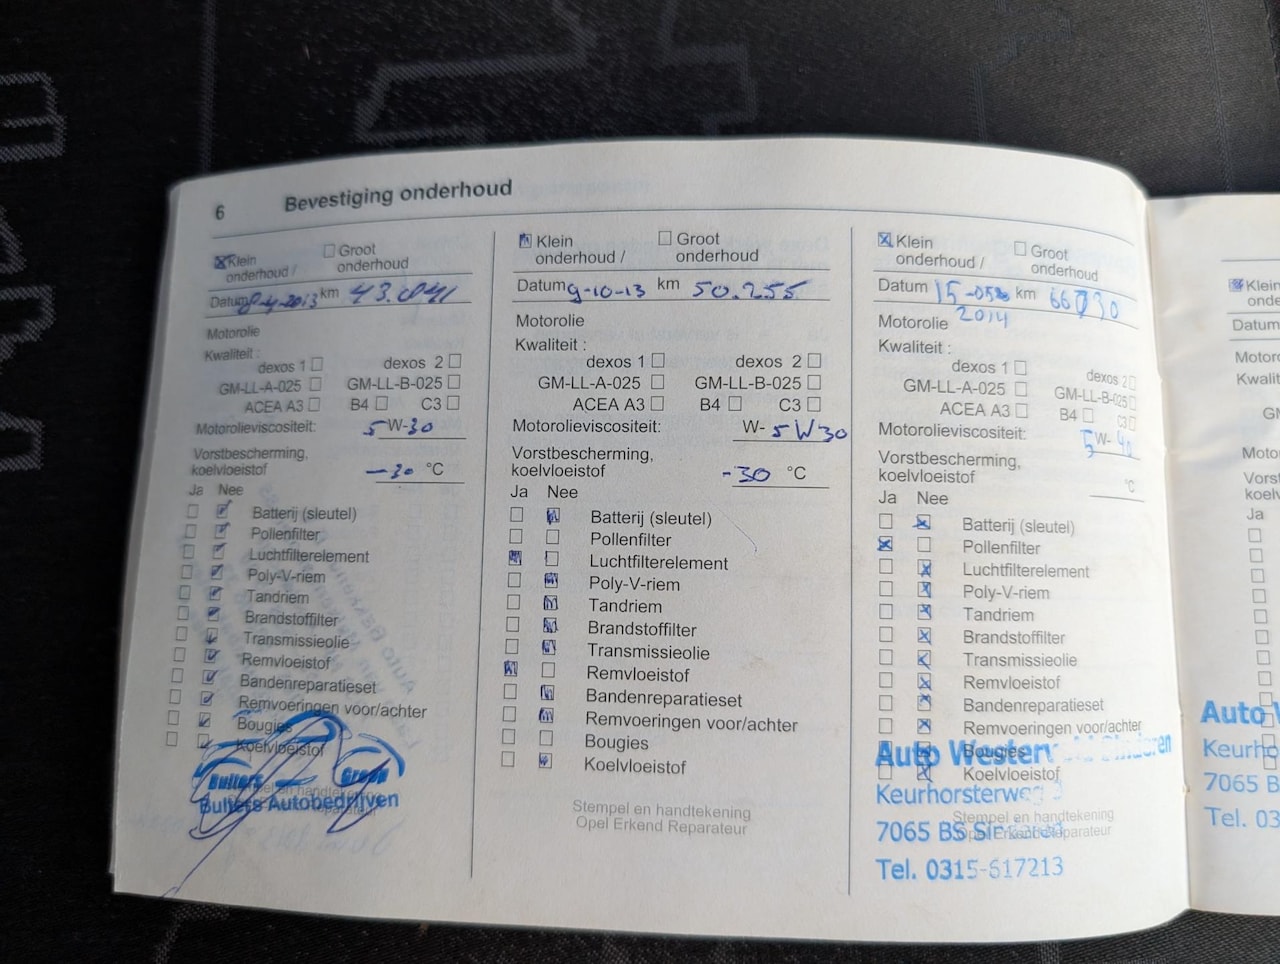 6 Bevestiging onderhoud
Klein onderhoud /
Groot onderhoud
Datum 8-4-2013 km 43.041
Motorolie
Kwaliteit :
dexos 1 dexos 2
GM-LL-A-025 GM-LL-B-025
ACEA A3 B4 C3
Motorolieviscositeit: 5W-30
Vorstbescherming,
koelvloeistof -30 °C
Ja Nee
Batterij (sleutel)
Pollenfilter
Luchtfilterelement
Poly-V-riem
Tandriem
Brandstoffilter
Transmissieolie
Remvloeistof
Bandenreparatieset
Remvoeringen voor/achter
Bougies
Koelvloeistof
Bulters Groep
Bulters Autobedrijven
Stempel en handtekening
Klein onderhoud /
Groot onderhoud
Datum 9-10-13 km 50.255
Motorolie
Kwaliteit :
dexos 1 dexos 2
GM-LL-A-025 GM-LL-B-025
ACEA A3 B4 C3
Motorolieviscositeit: W- 5W30
Vorstbescherming,
koelvloeistof -30 °C
Ja Nee
Batterij (sleutel)
Pollenfilter
Luchtfilterelement
Poly-V-riem
Tandriem
Brandstoffilter
Transmissieolie
Remvloeistof
Bandenreparatieset
Remvoeringen voor/achter
Bougies
Koelvloeistof
Stempel en handtekening
Opel Erkend Reparateur
Klein onderhoud /
Groot onderhoud
Datum 15-05 2014 km 66730
Motorolie
Kwaliteit :
dexos 1 dexos 2
GM-LL-A-025 GM-LL-B-025
ACEA A3 B4 C3
Motorolieviscositeit: 5W-
Vorstbescherming,
koelvloeistof °C
Ja Nee
Batterij (sleutel)
Pollenfilter
Luchtfilterelement
Poly-V-riem
Tandriem
Brandstoffilter
Transmissieolie
Remvloeistof
Bandenreparatieset
Remvoeringen voor/achter
Bougies
Koelvloeistof
Auto Westerveld Sinderen
Keurhorsterweg
Stempel en handtekening
7065 BS Sinderen
Opel Erkend Reparateur
Tel. 0315-617213
Klein
Datum
Ja
Auto
7065 B
Tel. 03